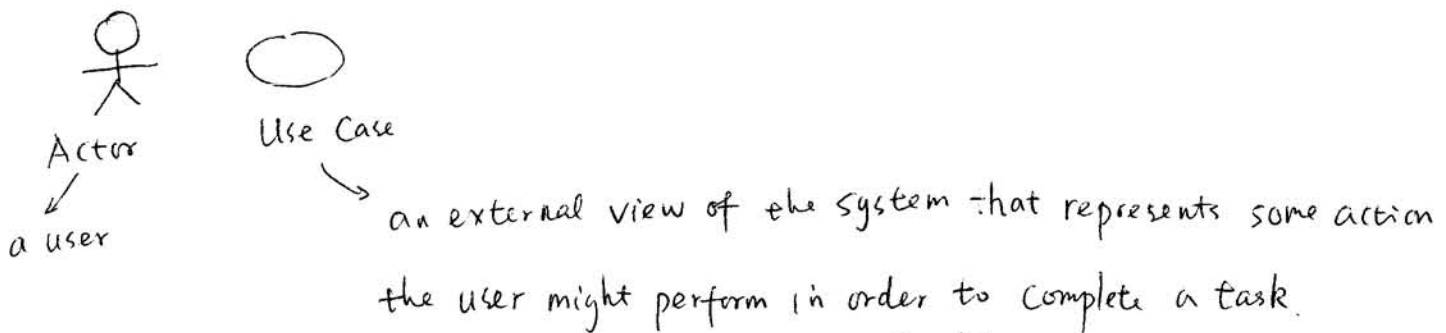 Actor
Use Case
a user
an external view of the system that represents some action
the user might perform in order to complete a task.